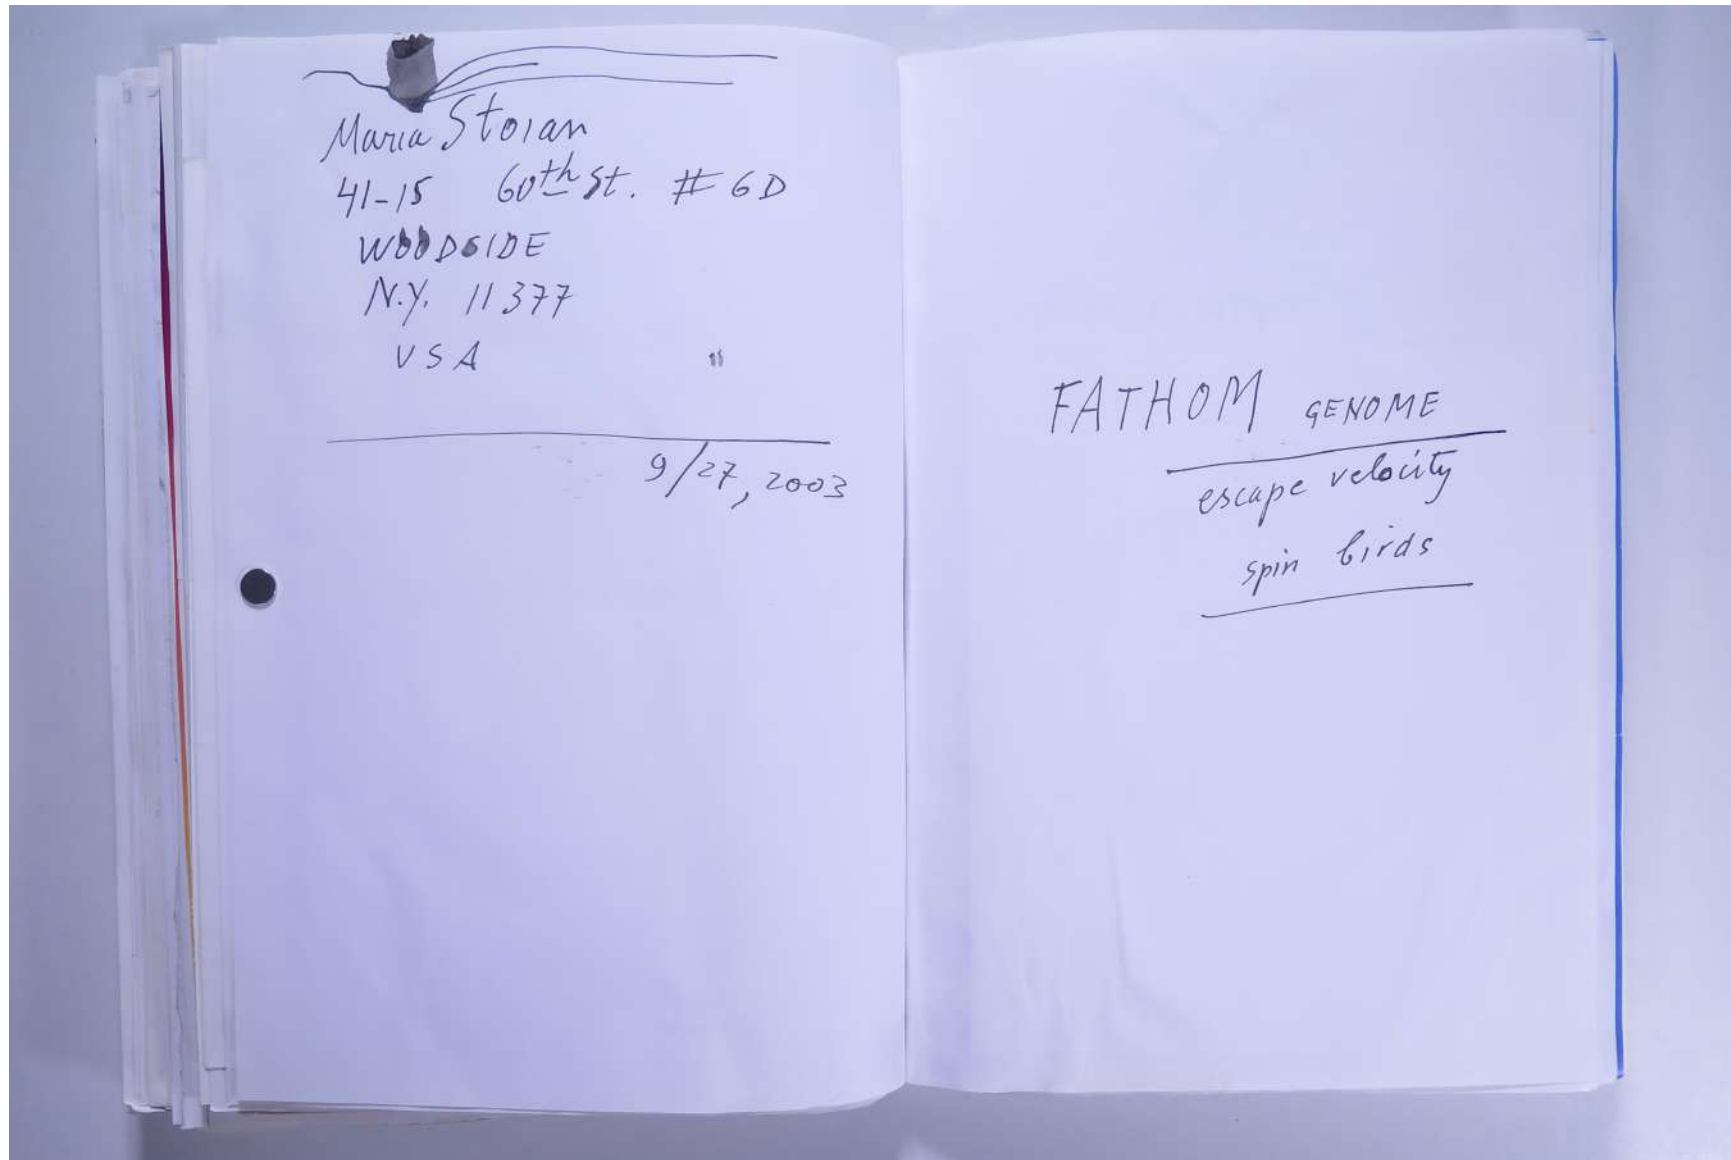 Maria Stoian
41-15 60th St. # 6D
WOODSIDE
N.Y. 11377
USA
9/27, 2003
FATHOM GENOME
escape velocity
spin birds